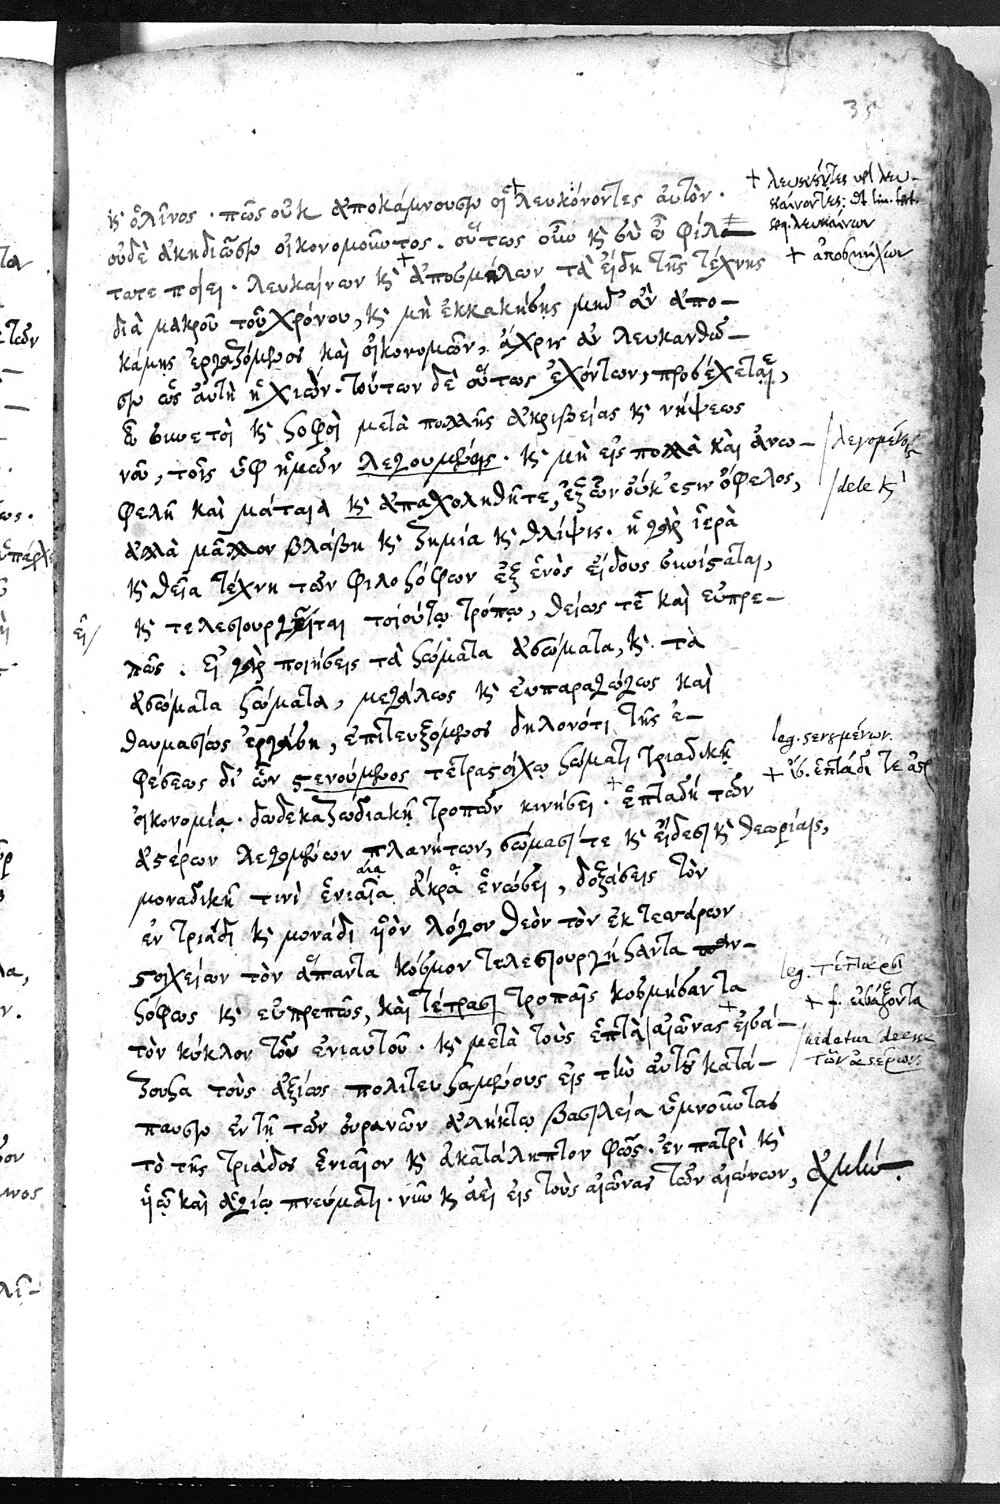 35
κ ὁ λῖνος. πῶς οὐκ ἀποκάμνουσιν οἱ λευκόνοντες αὐτὸν.
οὐδὲ ἀκηδιῶσιν οἰκονομοῦντος. οὕτως οὖν κ σὺ ὦ φίλ
τατε ποίει. λευκαίνων κ ἀποσμίλων τὰ εἴδη τῆς τέχνης
διὰ μακροῦ τοῦ χρόνου, κ μὴ ἐκκακήσῃς μηδ' ἂν ἀπο-
κάμῃς ἐργαζόμενος καὶ οἰκονομῶν, ἄχρις ἂν λευκανθῶ-
σιν ὡς αὐτὴ ἡ χιών. τούτων δὲ οὕτως ἐχόντων, προσέχεται,
ὦ συνετοὶ κ σοφοὶ μετὰ πολλῆς ἀκριβείας κ νήψεως
νοῦ, τοῖς ὑφ ἡμῶν λεγουμένοις. κ μὴ εἰς πολλὰ καὶ ἀνω-
φελῆ καὶ μάταια κ ἀπασχοληθῆτε, ἐξ ὧν οὐκ ἔστιν ὄφελος,
ἀλλὰ μᾶλλον βλάβη κ ζημία κ θλίψις. ἡ γὰρ ἱερὰ
κ θεῖα τέχνη τῶν φιλοσόφων ἐξ ἑνὸς εἴδους συνίσταται,
κ τελεσιουργεῖται τοιούτῳ τρόπῳ, θείως τὲ καὶ εὐπρε-
πῶς. εἰ γὰρ ποιήσεις τὰ σώματα ἀσώματα, κ τὰ
ἀσώματα σώματα, μεγάλως κ ευπαραγώγως καὶ
θαυμασίως ἐργάσῃ, ἐπιτευξόμενος δηλονότι τῆς ἐ-
φέσεως δι' ὧν στενούμενος τετραστοίχῳ σώματι τριαδικῇ
οἰκονομίᾳ. δωδεκαζωδιακῇ τροπῶν κινήσει. ἑπταδῆ τῶν
ἀστέρων λεγομένων πλανήτων, σώμασί τε κ εἴδεσι κ θεωρίαις,
μοναδικῇ τινὶ ἑνιαῖα ἄκρα ἑνώσει, δοξάσεις τὸν
ἐν τριάδι κ μονάδι υἱὸν λόγον θεὸν τὸν ἐκ τεσσάρων
στοιχείων τὸν ἅπαντα κόσμον τελεσιουργήσαντα παν-
σόφως κ εὐπρεπῶς, καὶ τέτρασι τροπαῖς κοσμήσαντα
τὸν κύκλον τοῦ ἐνιαυτοῦ. κ μετὰ τοὺς ἑπτὰ αἰῶνας εἰσά-
ζουσα τοὺς ἀξίως πολιτευσαμένους εἰς τὴν αὐτοῦ κατά-
παυσιν ἐν τῇ τῶν οὐρανῶν ἀλήκτῳ βασιλεία ὑμνοῦντας
τὸ τῆς τριάδος ἑνιαῖον κ ἀκατάληπτον φῶς. ἐν πατρὶ κ
υἱῷ καὶ ἁγίῳ πνεύματι. νῦν κ ἀεὶ εἰς τοὺς αἰῶνας τῶν αἰώνων, ἀμήν.
+ ἀποσμήχων
λεγομένοις
dele κ
εῖ/
+ ἑπτάδι τε
leg. τέτταρσι
+ f. εἰσάξοντα
videtur deesse
τῶν ἀστέρων.